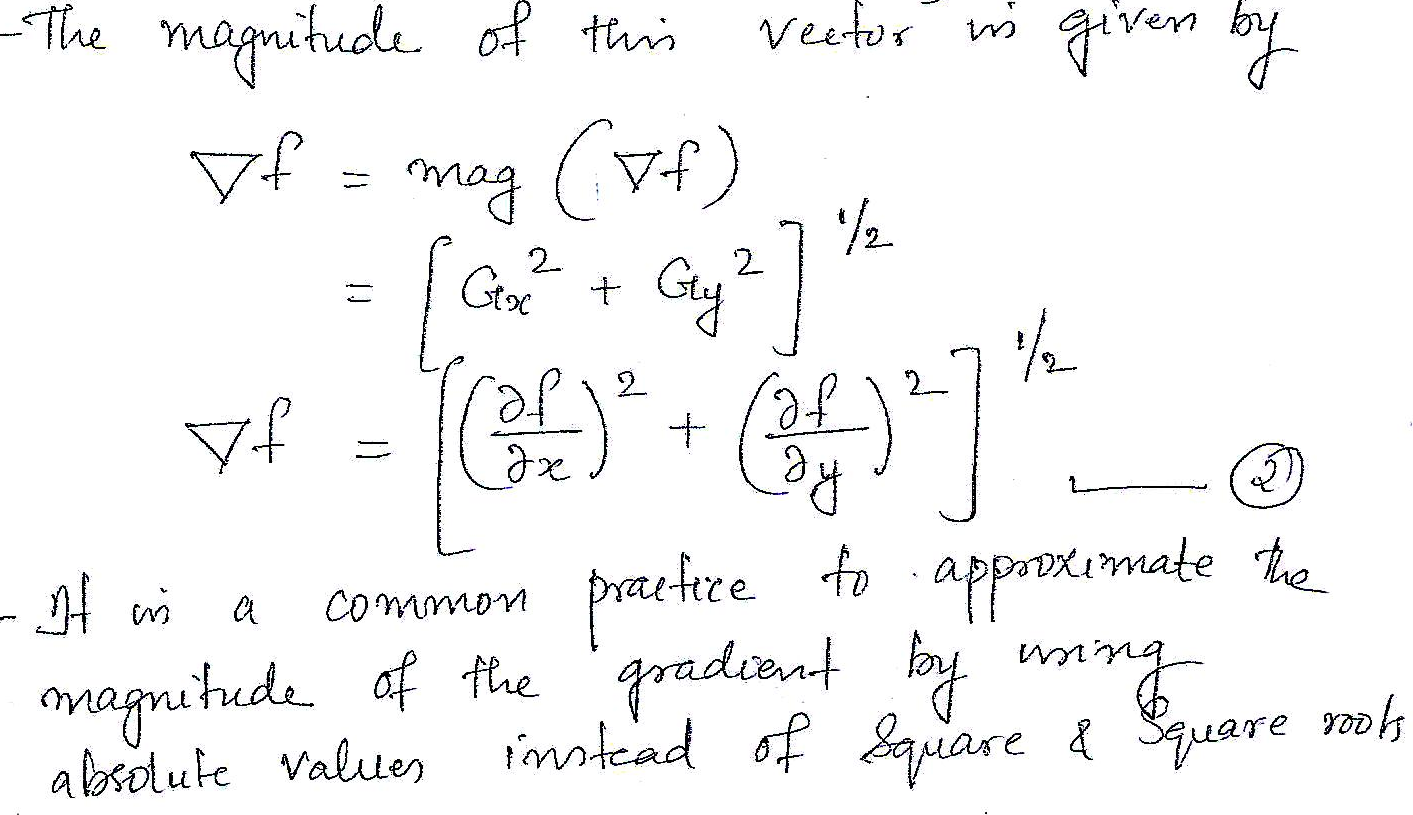 - The magnitude of this vector is given by
∇f = mag (∇f)
= [Gx² + Gy²]^1/2
∇f = [(∂f/∂x)² + (∂f/∂y)²]^1/2 — ②
- It is a common practice to approximate the
magnitude of the gradient by using
absolute values instead of Square & Square roots